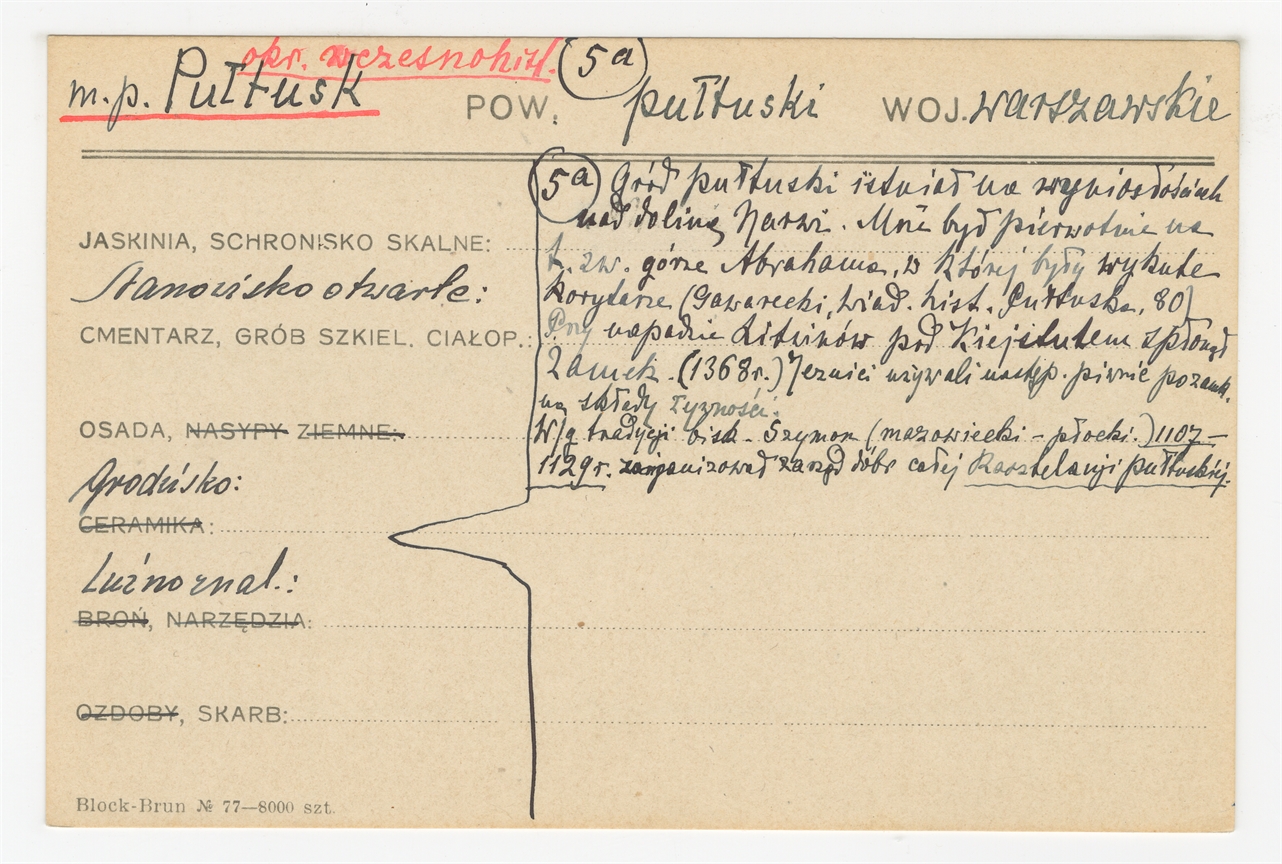 okr. wczesnohist. (5a)
m.p. Pułtusk POW. pułtuski WOJ. warszawskie
(5a) Gród pułtuski istniał na wyniosłościach
nad doliną Narwi. Mnie był pierwotnie na
JASKINIA, SCHRONISKO SKALNE: t. zw. górze Abrahama, w której były wykute
Stanowisko otwarte: korytarze (Gawarecki, Wiad. hist. Pułtuska, 80)
CMENTARZ, GRÓB SZKIEL. CIAŁOP.: Przy napadzie Litwinów pod Kiejstutem spłonął
Zamek. (1368 r.) Jezuici używali następ. piwnic pozamk.
na składy żywności.
OSADA, NASYPY ZIEMNE: W/g tradycji bisk. Szymon (mazowiecki - płocki.) 1107 -
1129 r. zorganizował zarząd dóbr całej Kasztelanji pułtuskiej.
Grodzisko:
CERAMIKA:
Luźno znal.:
BROŃ, NARZĘDZIA:
OZDOBY, SKARB:
Block-Brun № 77—8000 szt.